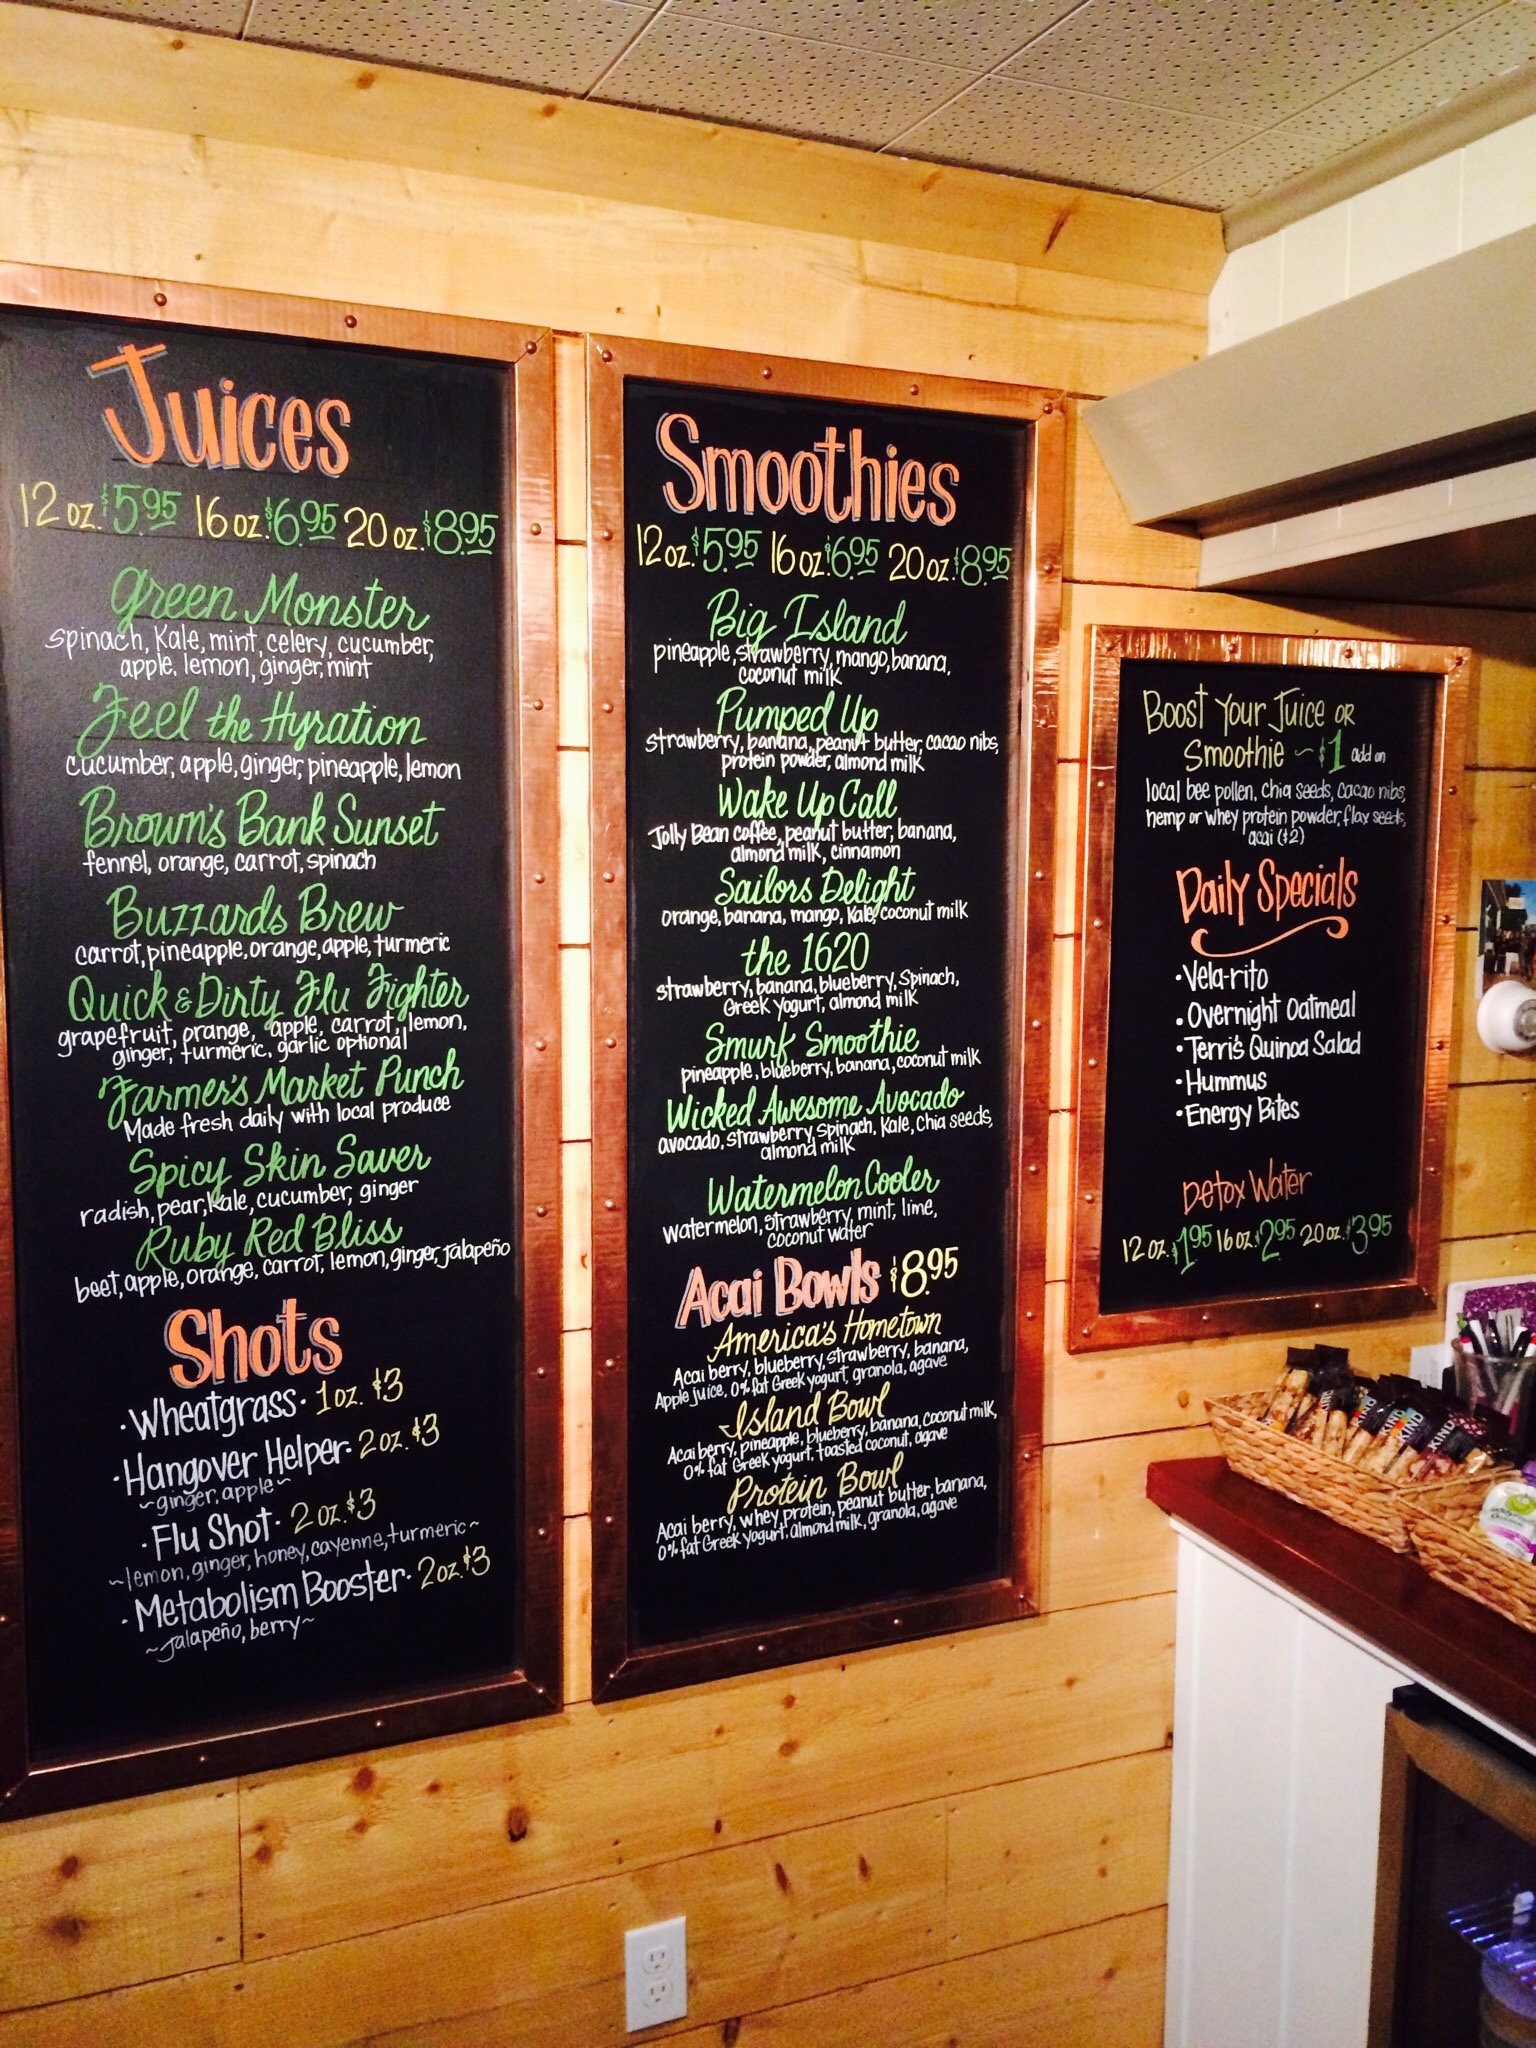 Juices
12 oz. $5.95 16 oz. $6.95 20 oz. $8.95
Green Monster
spinach, kale, mint, celery, cucumber,
apple, lemon, ginger, mint
Feel the Hyration
cucumber, apple, ginger, pineapple, lemon
Brown's Bank Sunset
fennel, orange, carrot, spinach
Buzzards Brew
carrot, pineapple, orange, apple, turmeric
Quick & Dirty Flu Fighter
grapefruit, orange, apple, carrot, lemon,
ginger, turmeric, garlic optional
Farmer's Market Punch
Made fresh daily with local produce
Spicy Skin Saver
radish, pear, kale, cucumber, ginger
Ruby Red Bliss
beet, apple, orange, carrot, lemon, ginger, jalapeño
Shots
• Wheatgrass • 1 oz. $3
• Hangover Helper • 2 oz. $3
~ ginger, apple ~
• Flu Shot • 2 oz. $3
~ lemon, ginger, honey, cayenne, turmeric ~
• Metabolism Booster • 2 oz. $3
~ jalapeño, berry ~
Smoothies
12 oz. $5.95 16 oz. $6.95 20 oz. $8.95
Big Island
pineapple, strawberry, mango, banana,
coconut milk
Pumped Up
strawberry, banana, peanut butter, cacao nibs,
protein powder, almond milk
Wake Up Call
Jolly Bean coffee, peanut butter, banana,
almond milk, cinnamon
Sailors Delight
orange, banana, mango, kale, coconut milk
the 1620
strawberry, banana, blueberry, spinach,
Greek yogurt, almond milk
Smurf Smoothie
pineapple, blueberry, banana, coconut milk
Wicked Awesome Avocado
avocado, strawberry, spinach, kale, chia seeds,
almond milk
Watermelon Cooler
watermelon, strawberry, mint, lime,
coconut water
Acai Bowls $8.95
America's Hometown
Acai berry, blueberry, strawberry, banana,
Apple juice, 0% fat Greek yogurt, granola, agave
Island Bowl
Acai berry, pineapple, blueberry, banana, coconut milk,
0% fat Greek yogurt, toasted coconut, agave
Protein Bowl
Acai berry, whey protein, peanut butter, banana,
0% fat Greek yogurt, almond milk, granola, agave
Boost Your Juice or
Smoothie ~ $1 add on
local bee pollen, chia seeds, cacao nibs,
hemp or whey protein powder, flax seeds,
acai ($2)
Daily Specials
• Vela-rito
• Overnight Oatmeal
• Terri's Quinoa Salad
• Hummus
• Energy Bites
Detox Water
12 oz. $1.95 16 oz. $2.95 20 oz. $3.95
KIND
KIND
KIND